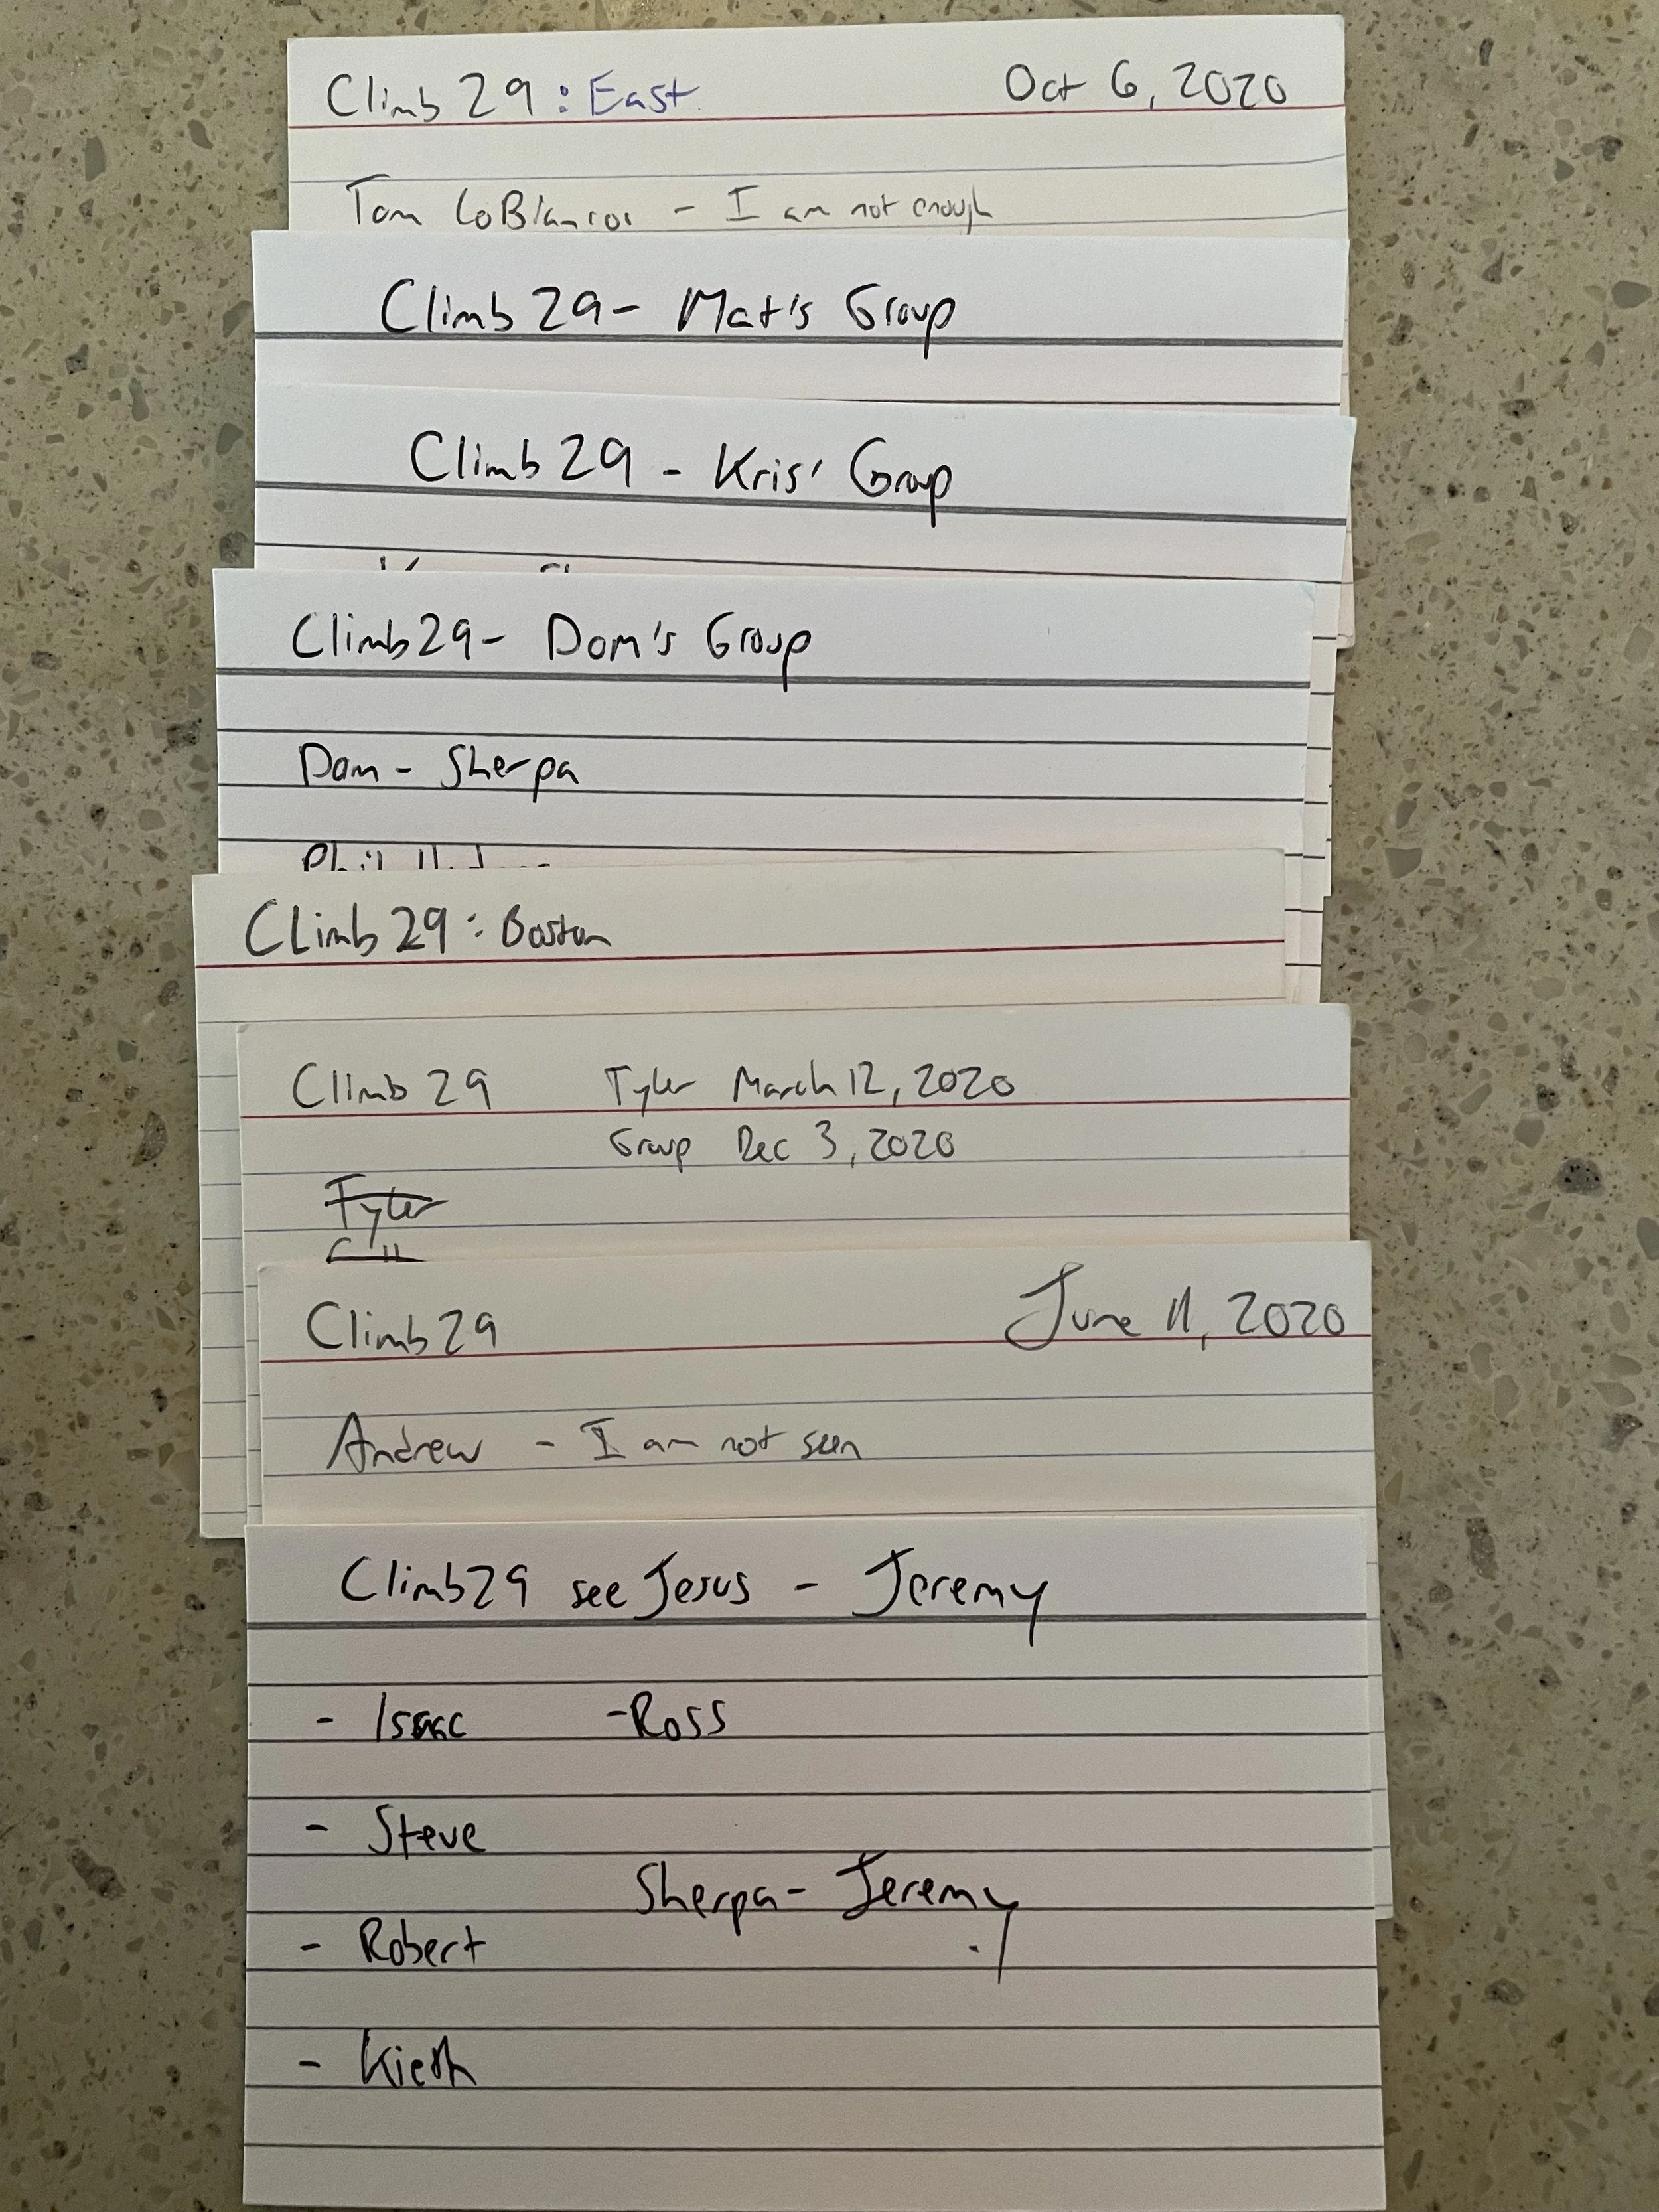 Climb 29 : East Oct 6, 2020
Tom LoBlanco - I am not enough
Climb 29 - Mat's Group
Climb 29 - Kris' Group
Climb 29 - Dom's Group
Dom - Sherpa
Phil
Climb 29 : Boston
Climb 29 Tyler March 12, 2020
Group Dec 3, 2020
Tyler
Climb 29 June 11, 2020
Andrew - I am not seen
Climb 29 see Jesus - Jeremy
- Isaac - Ross
- Steve
Sherpa - Jeremy
- Robert
- Kieth